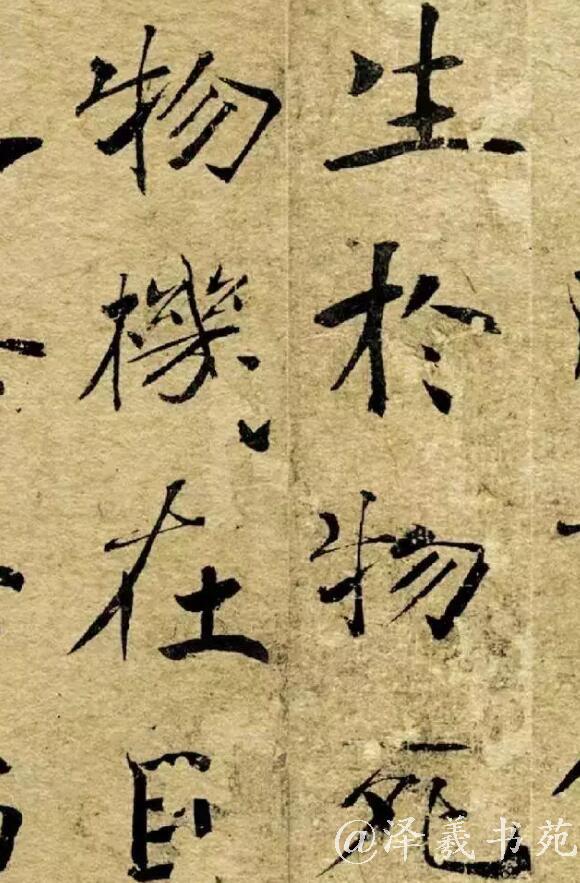 生於物死
物機在目
@泽羲书苑